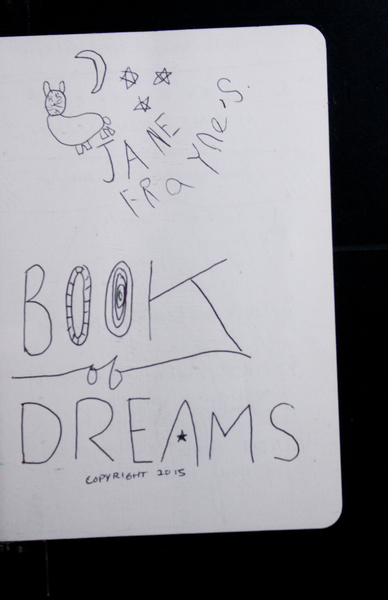 JANE
FRAYNE'S.
BOOK
of
DREAMS
COPYRIGHT 2015